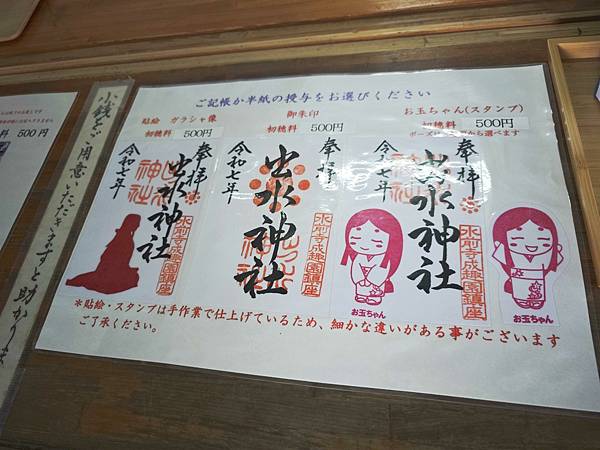 ご記帳か半紙の授与をお選びください
貼絵 ガラシャ像
初穂料 500円
御朱印
初穂料 500円
お玉ちゃん(スタンプ)
初穂料 500円
奉拝
出水神社
令和七年
奉拝
出水神社
令和七年
水前寺成趣園鎮座
奉拝
出水神社
令和七年
水前寺成趣園鎮座
お玉ちゃん
お玉ちゃん
*貼絵・スタンプは手作業で仕上げているため、細かな違いがある事がございます
ご了承ください。
小銭をご用意いただきますと助かりま
料 500円